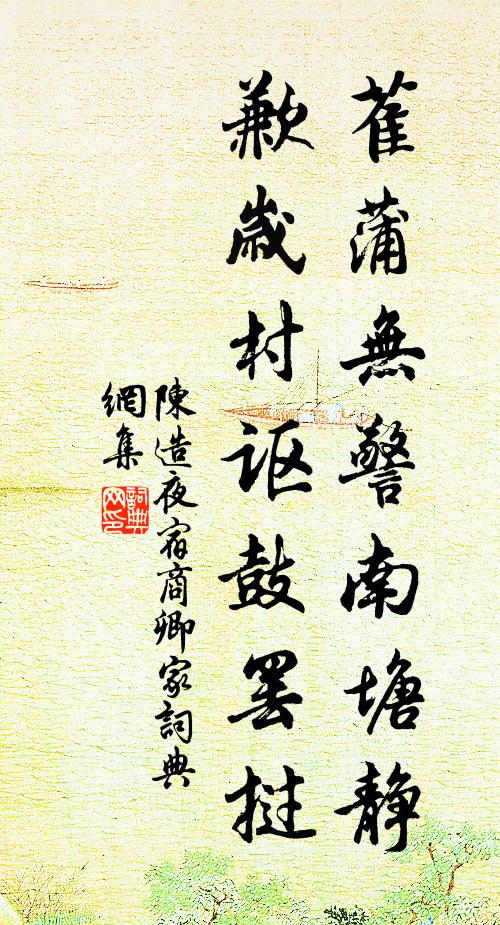 萑蒲無警南塘静
歉歲村讴鼓罢挝
陳造夜宿商卿家詞典
網集
詞典
网印